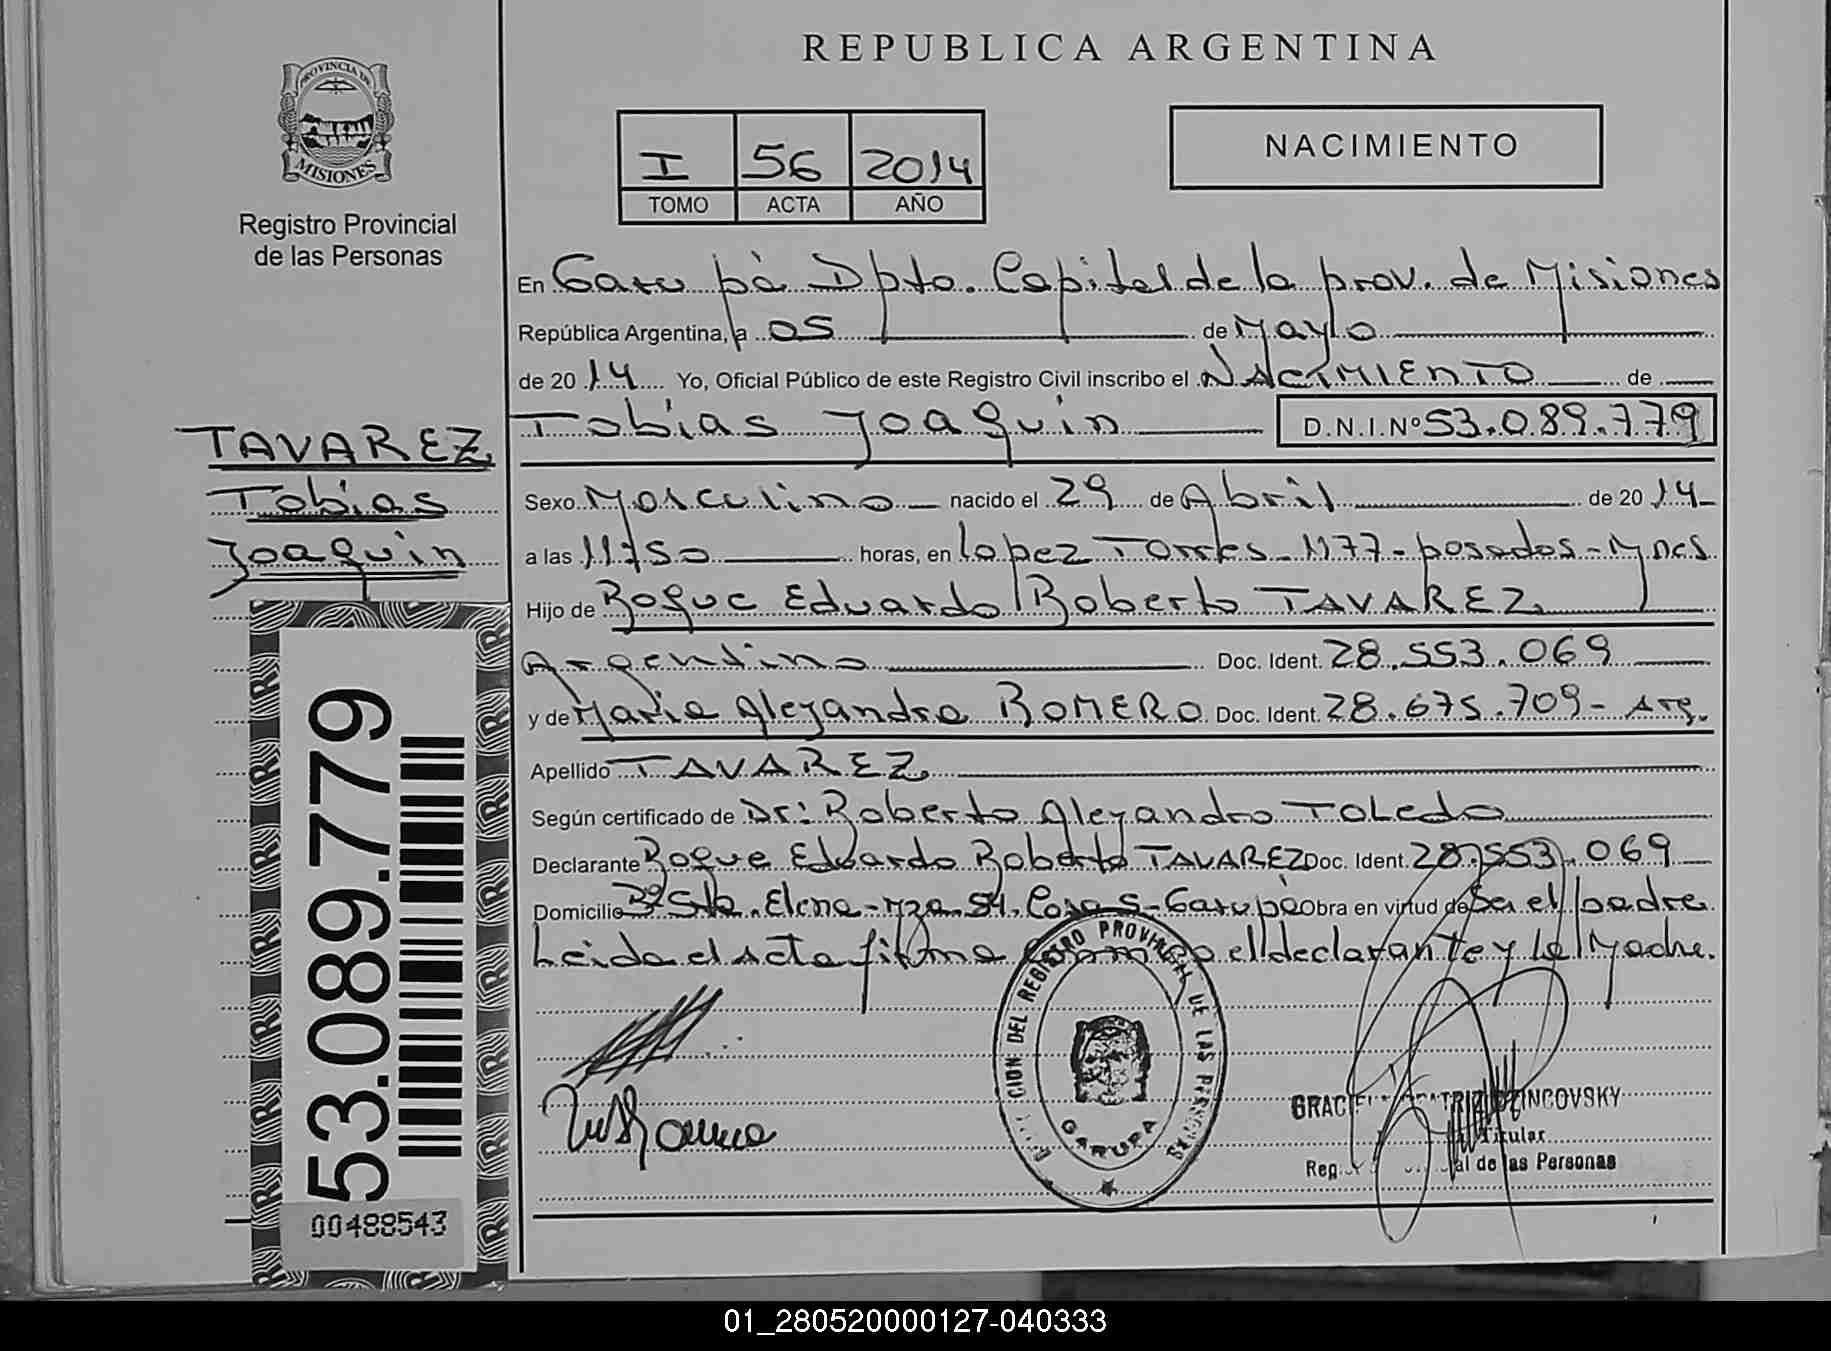 REPUBLICA ARGENTINA
PROVINCIA DE
MISIONES
Registro Provincial
de las Personas
I 56 2014
TOMO ACTA AÑO
NACIMIENTO
En Garupá Dpto. Capital de la prov. de Misiones
República Argentina, a 05 de Mayo
de 2014 Yo, Oficial Público de este Registro Civil inscribo el NACIMIENTO de
Tobías Joaquín D.N.I.Nº 53.089.779
TAVAREZ
Tobías
Joaquín
Sexo Masculino nacido el 29 de Abril de 2014
a las 11:50 horas, en Lopez Torres - 1177 - posadas - Mnes
Hijo de Roque Eduardo Roberto TAVAREZ
Argentino Doc. Ident. 28.553.069
y de Maria Alejandra ROMERO Doc. Ident. 28.675.709 - Arg.
Apellido TAVAREZ
Según certificado de Dr: Roberto Alejandro TOLEDO
Declarante Roque Eduardo Roberto TAVAREZ Doc. Ident. 28.553.069
Domicilio Bº Sta. Elena - Mza 54, Casa 5 - Garupá Obra en virtud de Ser el padre
Leida el Acta firma conmigo el declarante y la Madre.
REGISTRO PROVINCIAL DE LAS PERSONAS
GARUPA
Titular
al de las Personas
53.089.779
00488543
01_280520000127-040333